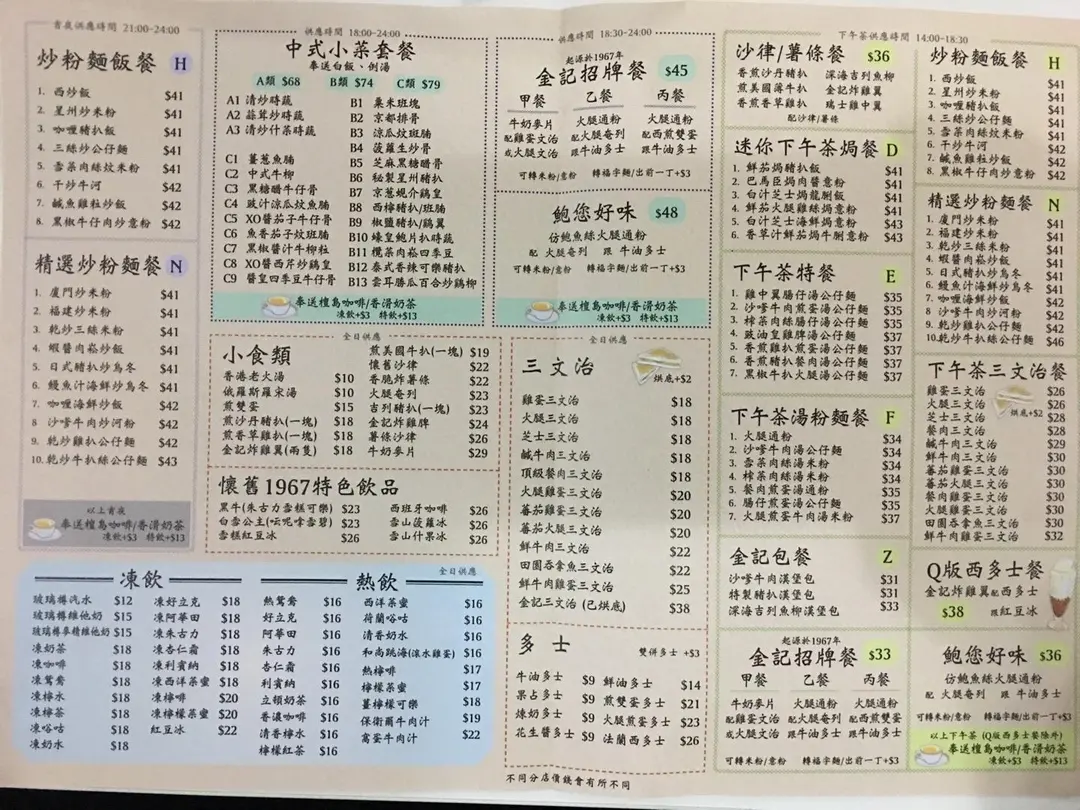 宵夜供應時間 21:00-24:00
炒粉麵飯餐 H
1. 西炒飯 $41
2. 星州炒米粉 $41
3. 咖喱豬扒飯 $41
4. 三絲炒公仔麵 $41
5. 雪菜肉絲炆米粉 $41
6. 干炒牛河 $42
7. 鹹魚雞粒炒飯 $42
8. 黑椒牛仔肉炒意粉 $42
精選炒粉麵餐 N
1. 廈門炒米粉 $41
2. 福建炒米粉 $41
3. 乾炒三絲米粉 $41
4. 蝦醬肉崧炒飯 $41
5. 日式豬扒炒烏冬 $41
6. 鰻魚汁海鮮炒烏冬 $41
7. 咖喱海鮮炒飯 $42
8 沙嗲牛肉炒河粉 $42
9. 乾炒雞扒公仔麵 $42
10. 乾炒牛扒絲公仔麵 $43
以上宵夜
奉送檀島咖啡/香滑奶茶
凍飲+$3 特飲+$13
供應時間 18:00-24:00
中式小菜套餐
奉送白飯、例湯
A類 $68 B類 $74 C類 $79
A1 清炒時蔬
A2 蒜茸炒時蔬
A3 清炒什菜時蔬
C1 薑蔥魚腩
C2 中式牛柳
C3 黑糖醋牛仔骨
C4 豉汁涼瓜炆魚腩
C5 XO醬茄子牛仔骨
C6 魚香茄子炆班腩
C7 黑椒醬汁牛柳粒
C8 XO醬西芹炒鷄皇
C9 醬皇四季豆牛仔骨
B1 粟米班塊
B2 京都排骨
B3 涼瓜炆班腩
B4 菠蘿生炒骨
B5 芝麻黑糖醋骨
B6 秘製星州豬扒
B7 京蔥焗介鷄皇
B8 西檸豬扒/班腩
B9 椒鹽豬扒/鷄翼
B10 蠔皇鮑片扒時蔬
B11 欖菜肉崧四季豆
B12 泰式香辣可樂豬扒
B13 雲耳勝瓜百合炒鷄柳
奉送檀島咖啡/香滑奶茶
凍飲+$3 特飲+$13
供應時間 18:30-24:00
起源於1967年
金記招牌餐 $45
甲餐 乙餐 丙餐
牛奶麥片 火腿通粉 火腿通粉
配雞蛋文治 配火腿奄列 配西煎雙蛋
或火腿文治 跟牛油多士 跟牛油多士
可轉米粉/意粉 轉福字麵/出前一丁+$3
鮑您好味 $48
仿鮑魚絲火腿通粉
配 火腿奄列 跟 牛油多士
可轉米粉/意粉 轉福字麵/出前一丁+$3
奉送檀島咖啡/香滑奶茶
凍飲+$3 特飲+$13
全日供應
小食類
香港老火湯 $10
俄羅斯羅宋湯 $10
煎雙蛋 $15
煎沙丹豬扒(一塊) $18
煎香草雞扒(一塊) $18
金記炸雞翼(兩隻) $18
煎美國牛扒(一塊) $19
懷舊沙律 $22
香脆炸薯條 $22
火腿奄列 $23
吉列豬扒(一塊) $23
金記炸雞脾 $24
薯條沙律 $26
牛奶麥片 $29
懷舊1967特色飲品
黑牛(朱古力雪糕可樂) $23
白雪公主(呍呢嗱雪碧) $23
雪糕紅豆冰 $26
西班牙咖啡 $26
雪山菠蘿冰 $26
雪山什果冰 $26
全日供應
三文治 烘底+$2
雞蛋三文治 $18
火腿三文治 $18
芝士三文治 $18
鹹牛肉三文治 $18
頂級餐肉三文治 $18
火腿雞蛋三文治 $20
蕃茄雞蛋三文治 $20
蕃茄火腿三文治 $20
鮮牛肉三文治 $22
田園吞拿魚三文治 $22
鮮牛肉雞蛋三文治 $25
金記三文治 (已烘底) $38
多士 雙併多士 +$3
牛油多士 $9
果占多士 $9
煉奶多士 $9
花生醬多士 $9
鮮油多士 $14
煎雙蛋多士 $21
火腿煎蛋多士 $23
法蘭西多士 $26
全日供應
凍飲
玻璃樽汽水 $12
玻璃樽維他奶 $15
玻璃樽麥精維他奶 $15
凍奶茶 $18
凍咖啡 $18
凍鴛鴦 $18
凍檸水 $18
凍檸茶 $18
凍咯咕 $18
凍奶水 $18
凍好立克 $18
凍阿華田 $18
凍朱古力 $18
凍杏仁霜 $18
凍利賓納 $18
凍西洋菜蜜 $18
凍檸啡 $20
凍檸檬菜蜜 $20
紅豆冰 $22
熱飲
熱鴛鴦 $16
好立克 $16
阿華田 $16
朱古力 $16
杏仁霜 $16
利賓納 $16
立頓奶茶 $16
香濃咖啡 $16
清香檸水 $16
檸檬紅茶 $16
西洋菜蜜 $16
荷蘭咯咕 $16
清香奶水 $16
和尚跳海(滾水雞蛋) $16
熱檸啡 $17
檸檬菜蜜 $17
薑檸檬可樂 $18
保衛爾牛肉汁 $19
窩蛋牛肉汁 $22
下午茶供應時間 14:00-18:30
沙律/薯條餐 $36
香煎沙丹豬扒 深海吉列魚柳
煎美國薄牛扒 金記炸雞翼
香煎香草雞扒 瑞士雞中翼
配沙律/薯條
迷你下午茶焗餐 D
1. 鮮茄焗豬扒飯 $41
2. 巴馬臣焗肉醬意粉 $41
3. 白汁芝士焗龍脷飯 $41
4. 鮮茄火腿雞絲焗意粉 $41
5. 白汁芝士海鮮焗意粉 $43
6. 香草汁鮮茄焗牛脷意粉 $43
下午茶特餐 E
1. 雞中翼腸仔湯公仔麵 $35
2. 沙嗲牛肉煎蛋湯公仔麵 $35
3. 榨菜肉絲腸仔湯公仔麵 $35
4. 豉油皇雞脾湯公仔麵 $37
5. 香煎雞扒煎蛋湯公仔麵 $37
6. 香煎豬扒餐肉湯公仔麵 $37
7. 黑椒牛扒火腿湯公仔麵 $37
下午茶湯粉麵餐 F
1. 火腿通粉 $34
2. 沙嗲牛肉湯公仔麵 $34
3. 雪菜肉絲湯米粉 $34
4. 榨菜肉絲湯米粉 $34
5. 餐肉煎蛋湯通粉 $35
6. 腸仔煎蛋湯公仔麵 $35
7. 火腿煎蛋牛肉湯米粉 $37
金記包餐 Z
沙嗲牛肉漢堡包 $31
特製豬扒漢堡包 $31
深海吉列魚柳漢堡包 $33
起源於1967年
金記招牌餐 $33
甲餐 乙餐 丙餐
牛奶麥片 火腿通粉 火腿通粉
配雞蛋文治 配火腿奄列 配西煎雙蛋
或火腿文治 跟牛油多士 跟牛油多士
可轉米粉/意粉 轉福字麵/出前一丁+$3
炒粉麵飯餐 H
1. 西炒飯 $41
2. 星州炒米粉 $41
3. 咖喱豬扒飯 $41
4. 三絲炒公仔麵 $41
5. 雪菜肉絲炆米粉 $41
6. 干炒牛河 $42
7. 鹹魚雞粒炒飯 $42
8. 黑椒牛仔肉炒意粉 $42
精選炒粉麵餐 N
1. 廈門炒米粉 $41
2. 福建炒米粉 $41
3. 乾炒三絲米粉 $41
4. 蝦醬肉崧炒飯 $41
5. 日式豬扒炒烏冬 $41
6. 鰻魚汁海鮮炒烏冬 $41
7. 咖喱海鮮炒飯 $42
8. 沙嗲牛肉炒河粉 $42
9. 乾炒雞扒公仔麵 $42
10.乾炒牛扒絲公仔麵 $46
下午茶三文治餐
烘底+$2
雞蛋三文治 $26
火腿三文治 $26
芝士三文治 $28
餐肉三文治 $28
鹹牛肉三文治 $29
鮮牛肉三文治 $30
蕃茄雞蛋三文治 $30
蕃茄火腿三文治 $30
餐肉雞蛋三文治 $30
火腿雞蛋三文治 $30
田園吞拿魚三文治 $30
鮮牛肉雞蛋三文治 $32
Q版西多士餐
金記炸雞翼配西多士
$38 跟紅豆冰
鮑您好味 $36
仿鮑魚絲火腿通粉
配 火腿奄列 跟 牛油多士
可轉米粉/意粉 轉福字麵/出前一丁+$3
以上下午茶 (Q版西多士餐除外)
奉送檀島咖啡/香滑奶茶
凍飲+$3 特飲+$13
不同分店價錢會有所不同